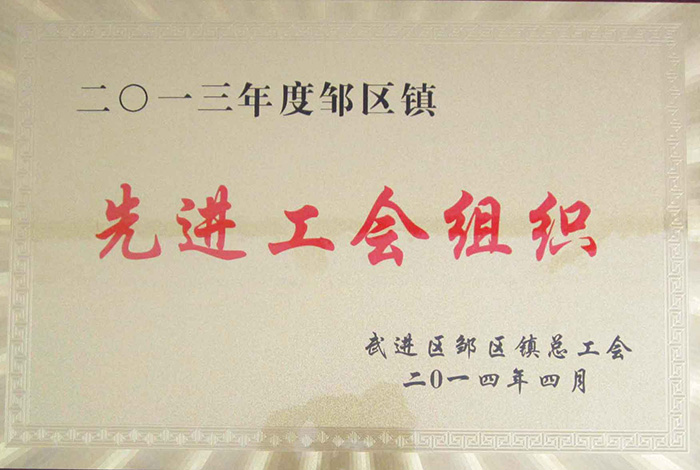 二〇一三年度邹区镇
先进工会组织
武进区邹区镇总工会
二0一四年四月